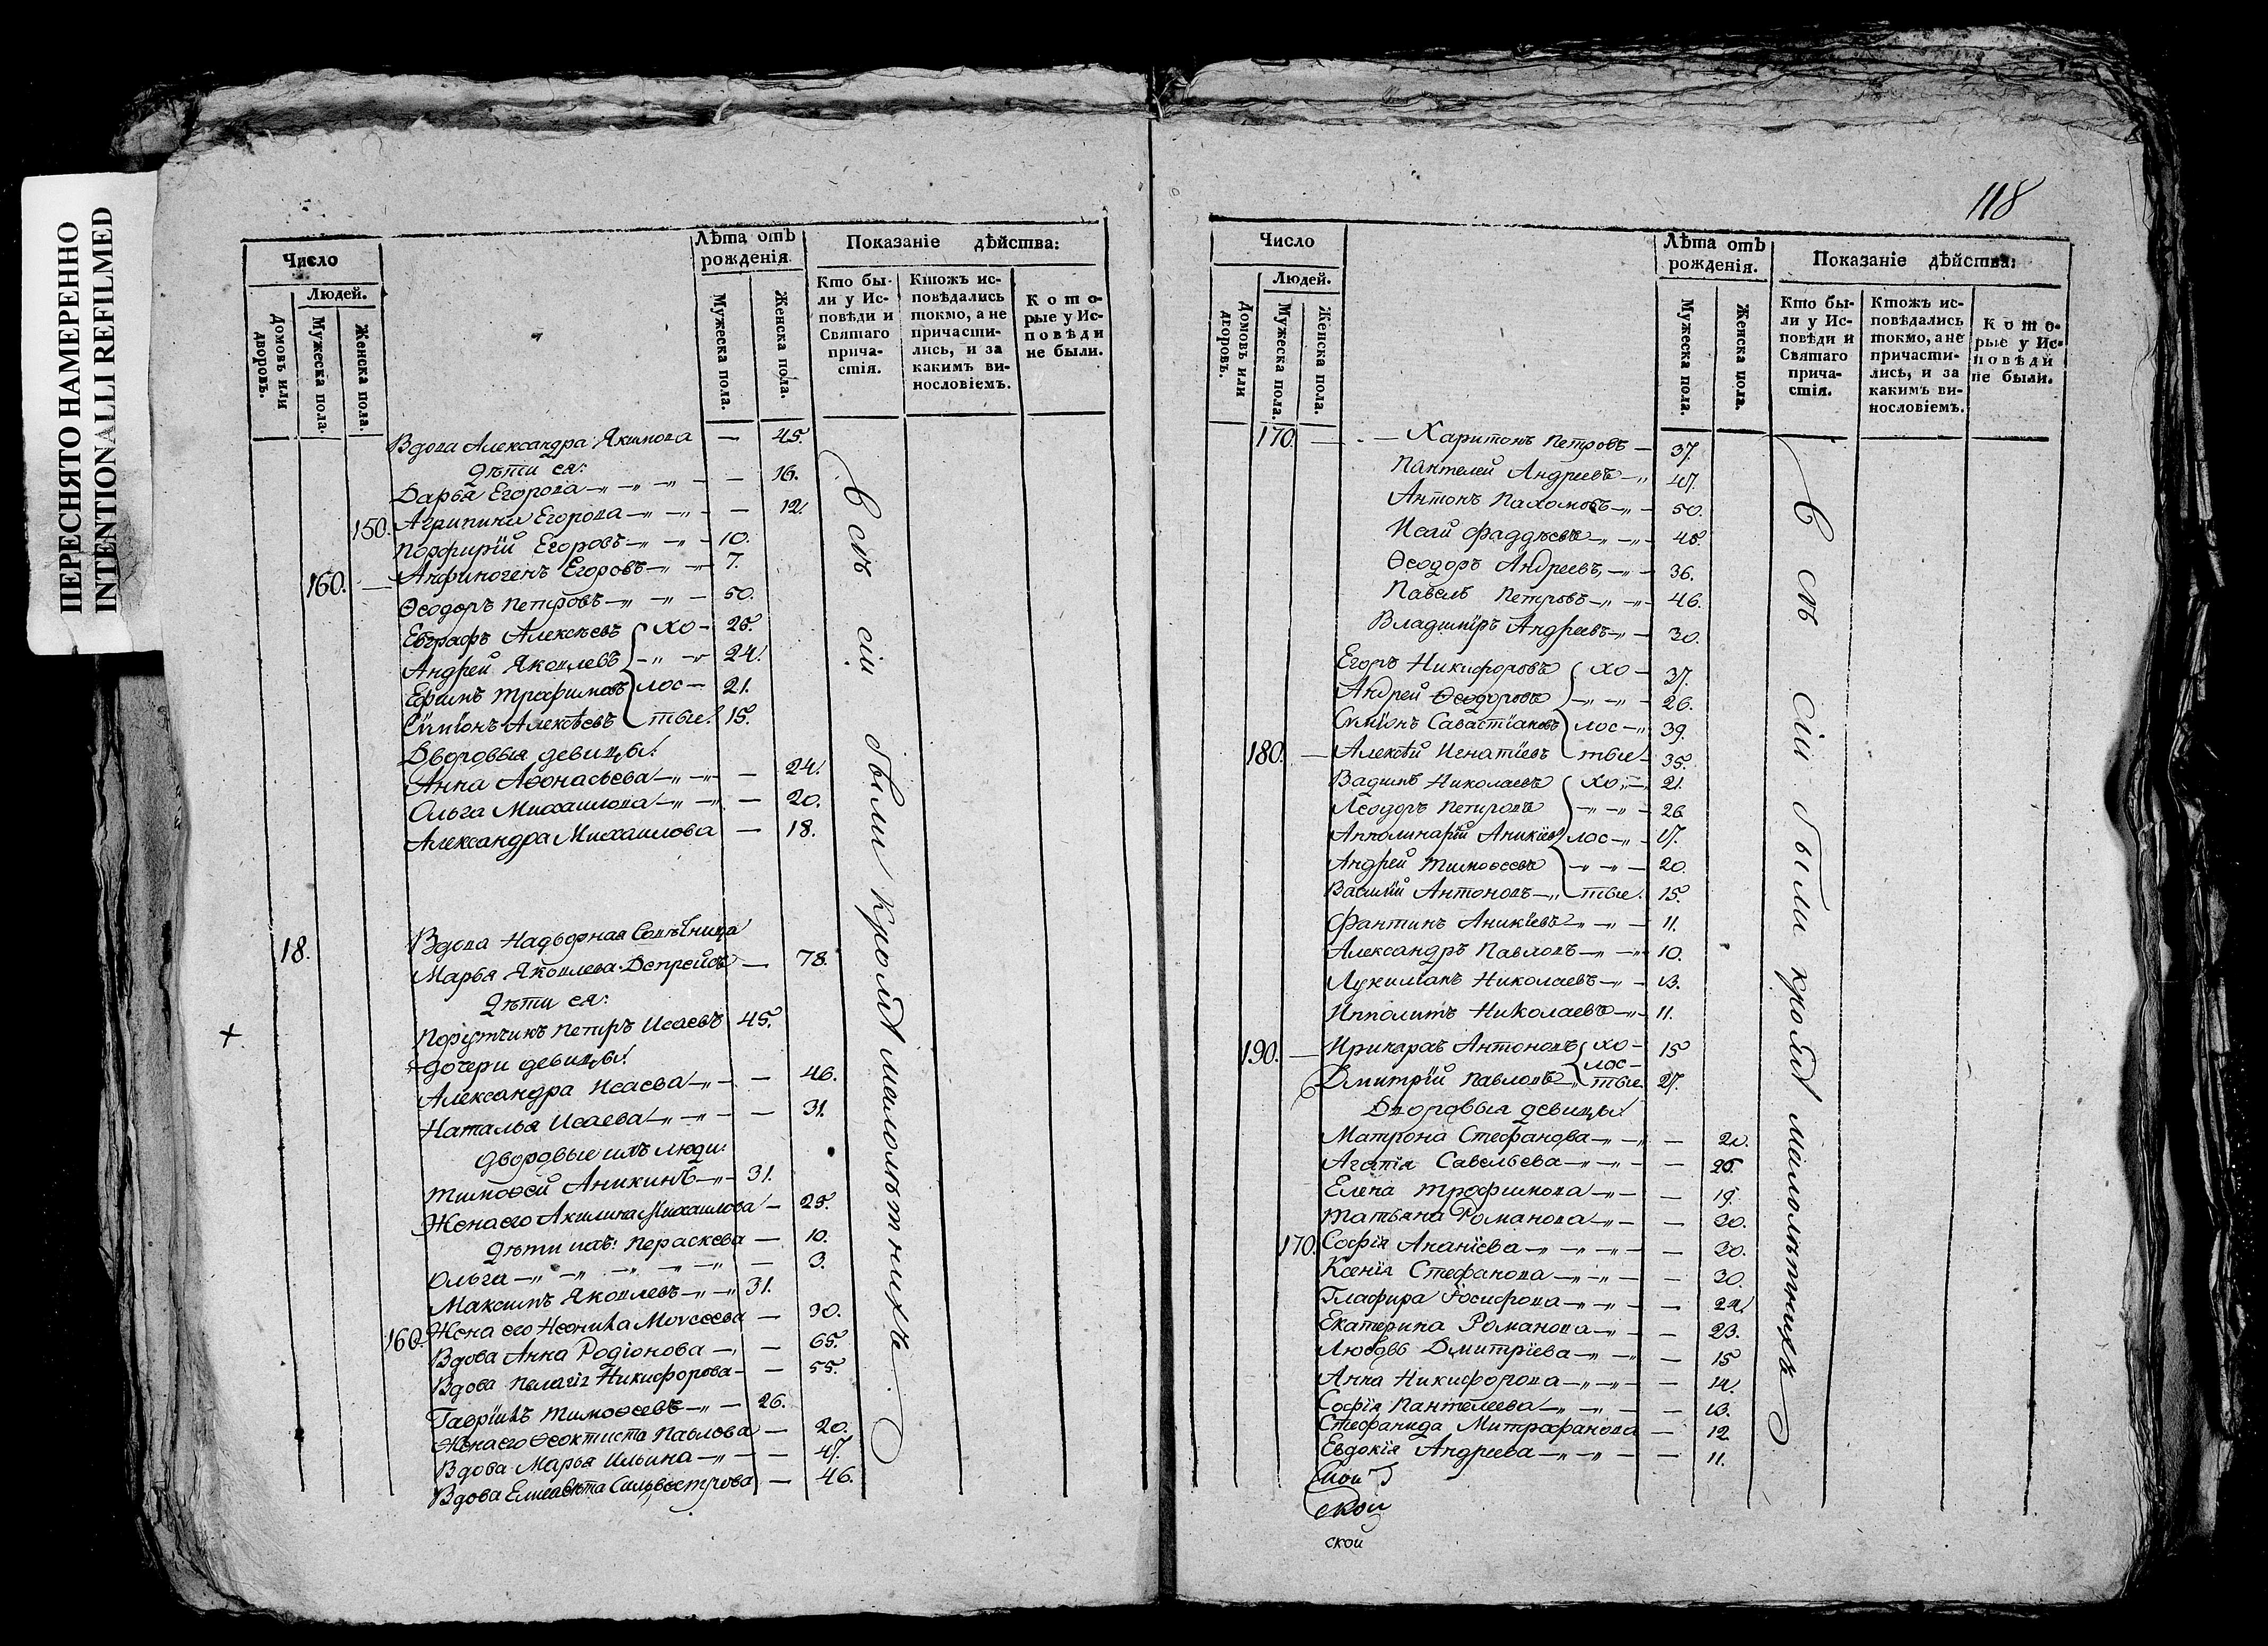 ПЕРЕСНЯТО НАМЕРЕННО
INTENTIONALLI REFILMED
Число
Людей.
Домовъ или дворовъ.
Мужеска пола.
Женска пола.
Лѣта отъ рожденія
Мужеска пола.
Женска пола.
Показаніе дѣйства:
Кто были у Исповѣди и Святаго причастія.
Ктожъ исповѣдались токмо, а не причастились, и за какимъ винословіемъ.
Которые у Исповѣди не были.
Вдова Александра Якимова — 45.
Дѣти ея:
Дарья Егорова — 16.
150. Агрипина Егорова — 12.
Порфирій Егоровъ — 10.
Анфиногенъ Егоровъ — 7.
160. — Ѳеодоръ Петровъ — 50.
Евграфъ Алексѣевъ хо- 25.
Андрей Яковлевъ — 24.
Ефимъ Трофимовъ лос- 21.
Симіонъ Алексѣевъ тые. 15.
Дворовыя девицы:
Анна Аѳонасьева — 24.
Ольга Михаилова — 20.
Александра Михаилова — 18.
18. Вдова Надворная Совѣтница
Марья Яковлева Депрейсъ — 78.
Дѣти ея:
+ Порутчикъ Петръ Исаевъ 45.
дочери девицы:
Александра Исаева — 46.
Наталья Исаева — 31.
дворовые ихъ люди:
Тимоѳей Аникинъ — 31.
Жена его Акилина Михаилова — 25.
Дѣти ихъ: Параскева — 10.
Ольга — 3.
Максимъ Яковлевъ — 31.
160. Жена его Неонила Моvсеева — 30.
Вдова Анна Родіонова — 65.
Вдова Пелагія Никифорова — 55.
Гавріилъ Тимоѳеевъ — 26.
Жена его Ѳеоктиста Павлова — 20.
Вдова Марья Ильина — 47.
Вдова Елисавета Сильвестрова — 46.
Всѣ сіи были кромѣ малолѣтнихъ.
118
Число
Людей.
Домовъ или дворовъ.
Мужеска пола.
Женска пола.
Лѣта отъ рожденія.
Мужеска пола.
Женска пола.
Показаніе дѣйства:
Кто были у Исповѣди и Святаго причастія.
Ктожъ исповѣдались токмо, а не причастились, и за какимъ винословіемъ.
Которые у Исповѣди не были.
170. — Харитонъ Петровъ — 37.
Пантелей Андреевъ — 47.
Антонъ Пахомовъ — 50.
Исай Фаддѣевъ — 45.
Ѳеодоръ Андреевъ — 36.
Павелъ Петровъ — 46.
Владиміръ Андреевъ — 30.
Егоръ Никифоровъ хо- 37.
Андрей Ѳеодоровъ — 26.
Симіонъ Савастіановъ лос- 39.
180. — Алексѣй Игнатіевъ тые 35.
Вадимъ Николаевъ хо- 21.
Ѳеодоръ Петровъ — 26
Апполинарій Аникіевъ лос- 17.
Андрей Тимоѳеевъ — 20.
Василій Антоновъ тые. 15.
Фантинъ Аникіевъ — 11.
Александръ Павловъ — 10.
Лукилианъ Николаевъ — 13.
Ипполитъ Николаевъ — 11.
190. — Антоновъ хо- 15
лос-
Дмитрій Павловъ тые. 27.
Дворовыя девицы:
Матрона Стефанова — 20.
Агапія Савельева — 25.
Елена Трофимова — 19.
Татьяна Романова — 30.
170. Софія Ананіева — 30.
Ксенія Стефанова — 30.
Глафира Іосифова — 22
Екатерина Романова — 23.
Любовь Дмитріева — 15
Анна Никифорова — 14.
Софія Пантелеева — 13.
Стефанида Митрофанова — 12
Евдокія Андреева — 11.
Всѣ сіи были кромѣ малолѣтнихъ
ской
ской